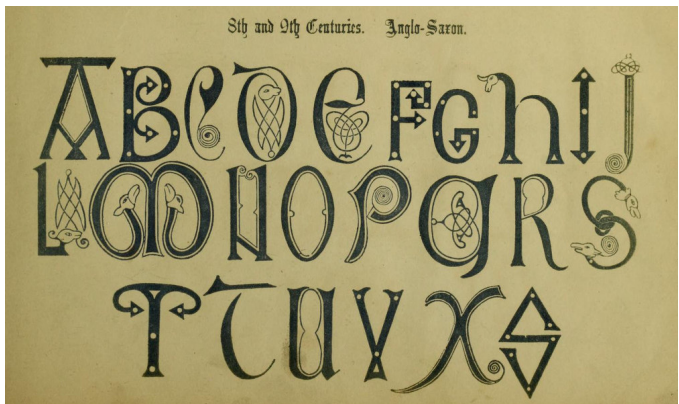 8th and 9th Centuries. Anglo-Saxon.
A B C D E F G h I J
L M N O P Q R S
T T U V X S